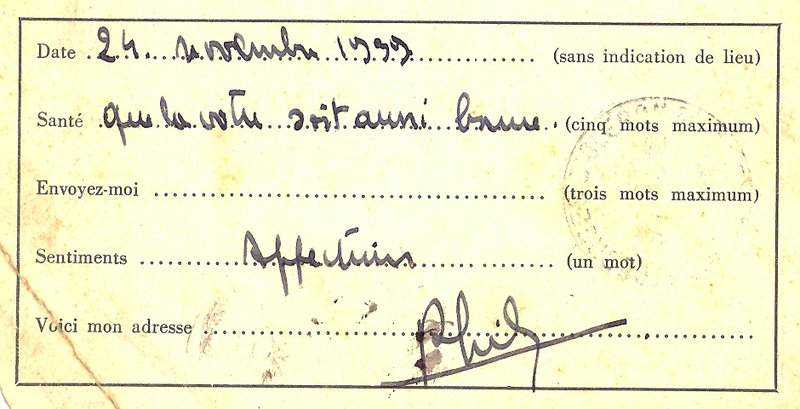 Date 24 novembre 1939 (sans indication de lieu)
Santé que la votre soit aussi bonne. (cinq mots maximum)
Envoyez-moi (trois mots maximum)
Sentiments Affectueux (un mot)
Voici mon adresse